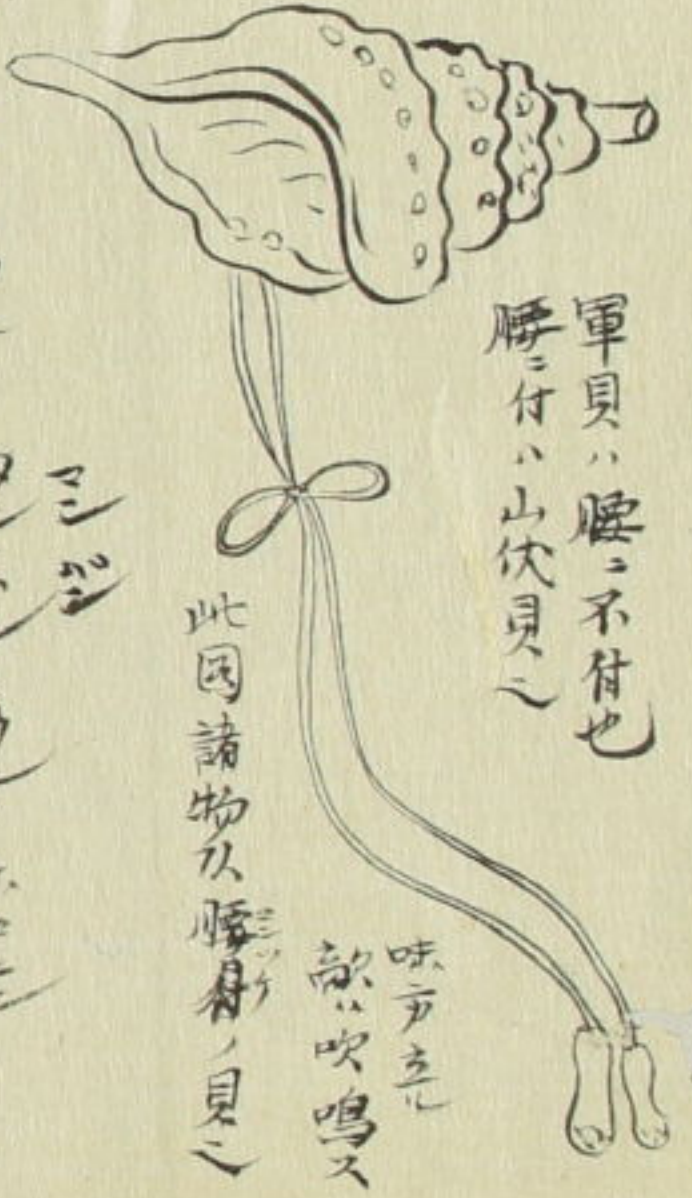 軍貝ハ腰ニ不付也
腰ニ付ハ山伏貝也
味方立ル
敵ハ吹鳴ス
此図諸物以腰付ノ貝也
コシツケ